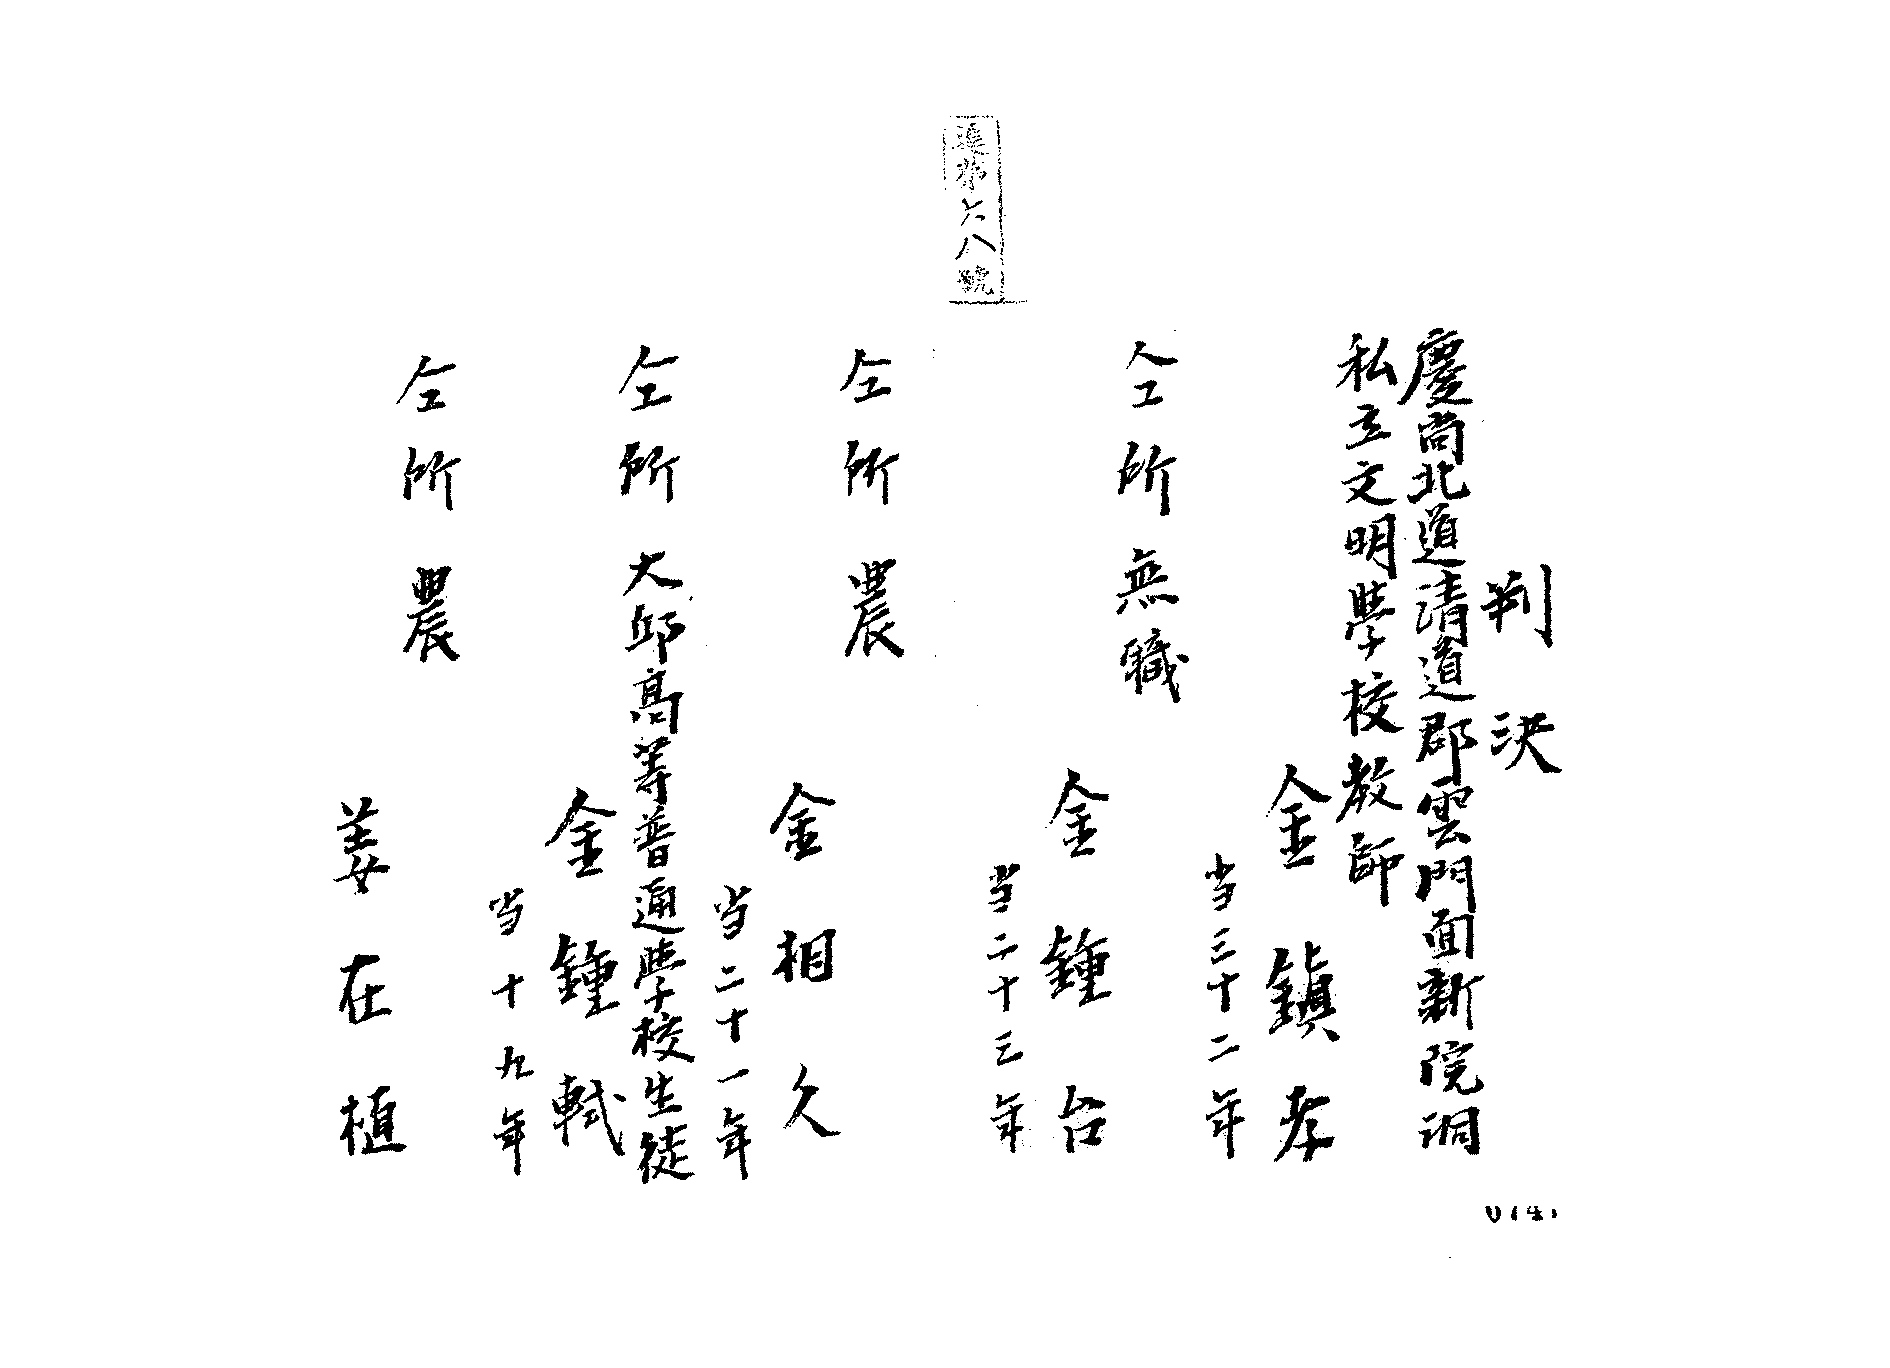 判決
慶尚北道清道郡雲門面新院洞
私立文明學校教師
金鎮孝
当三十二年
仝所 無職
金鍾台
当二十三年
仝所 農
金相久
当二十一年
仝所 大邱高等普通學校生徒
金鍾軾
当十九年
仝所 農
姜在植
第六八號